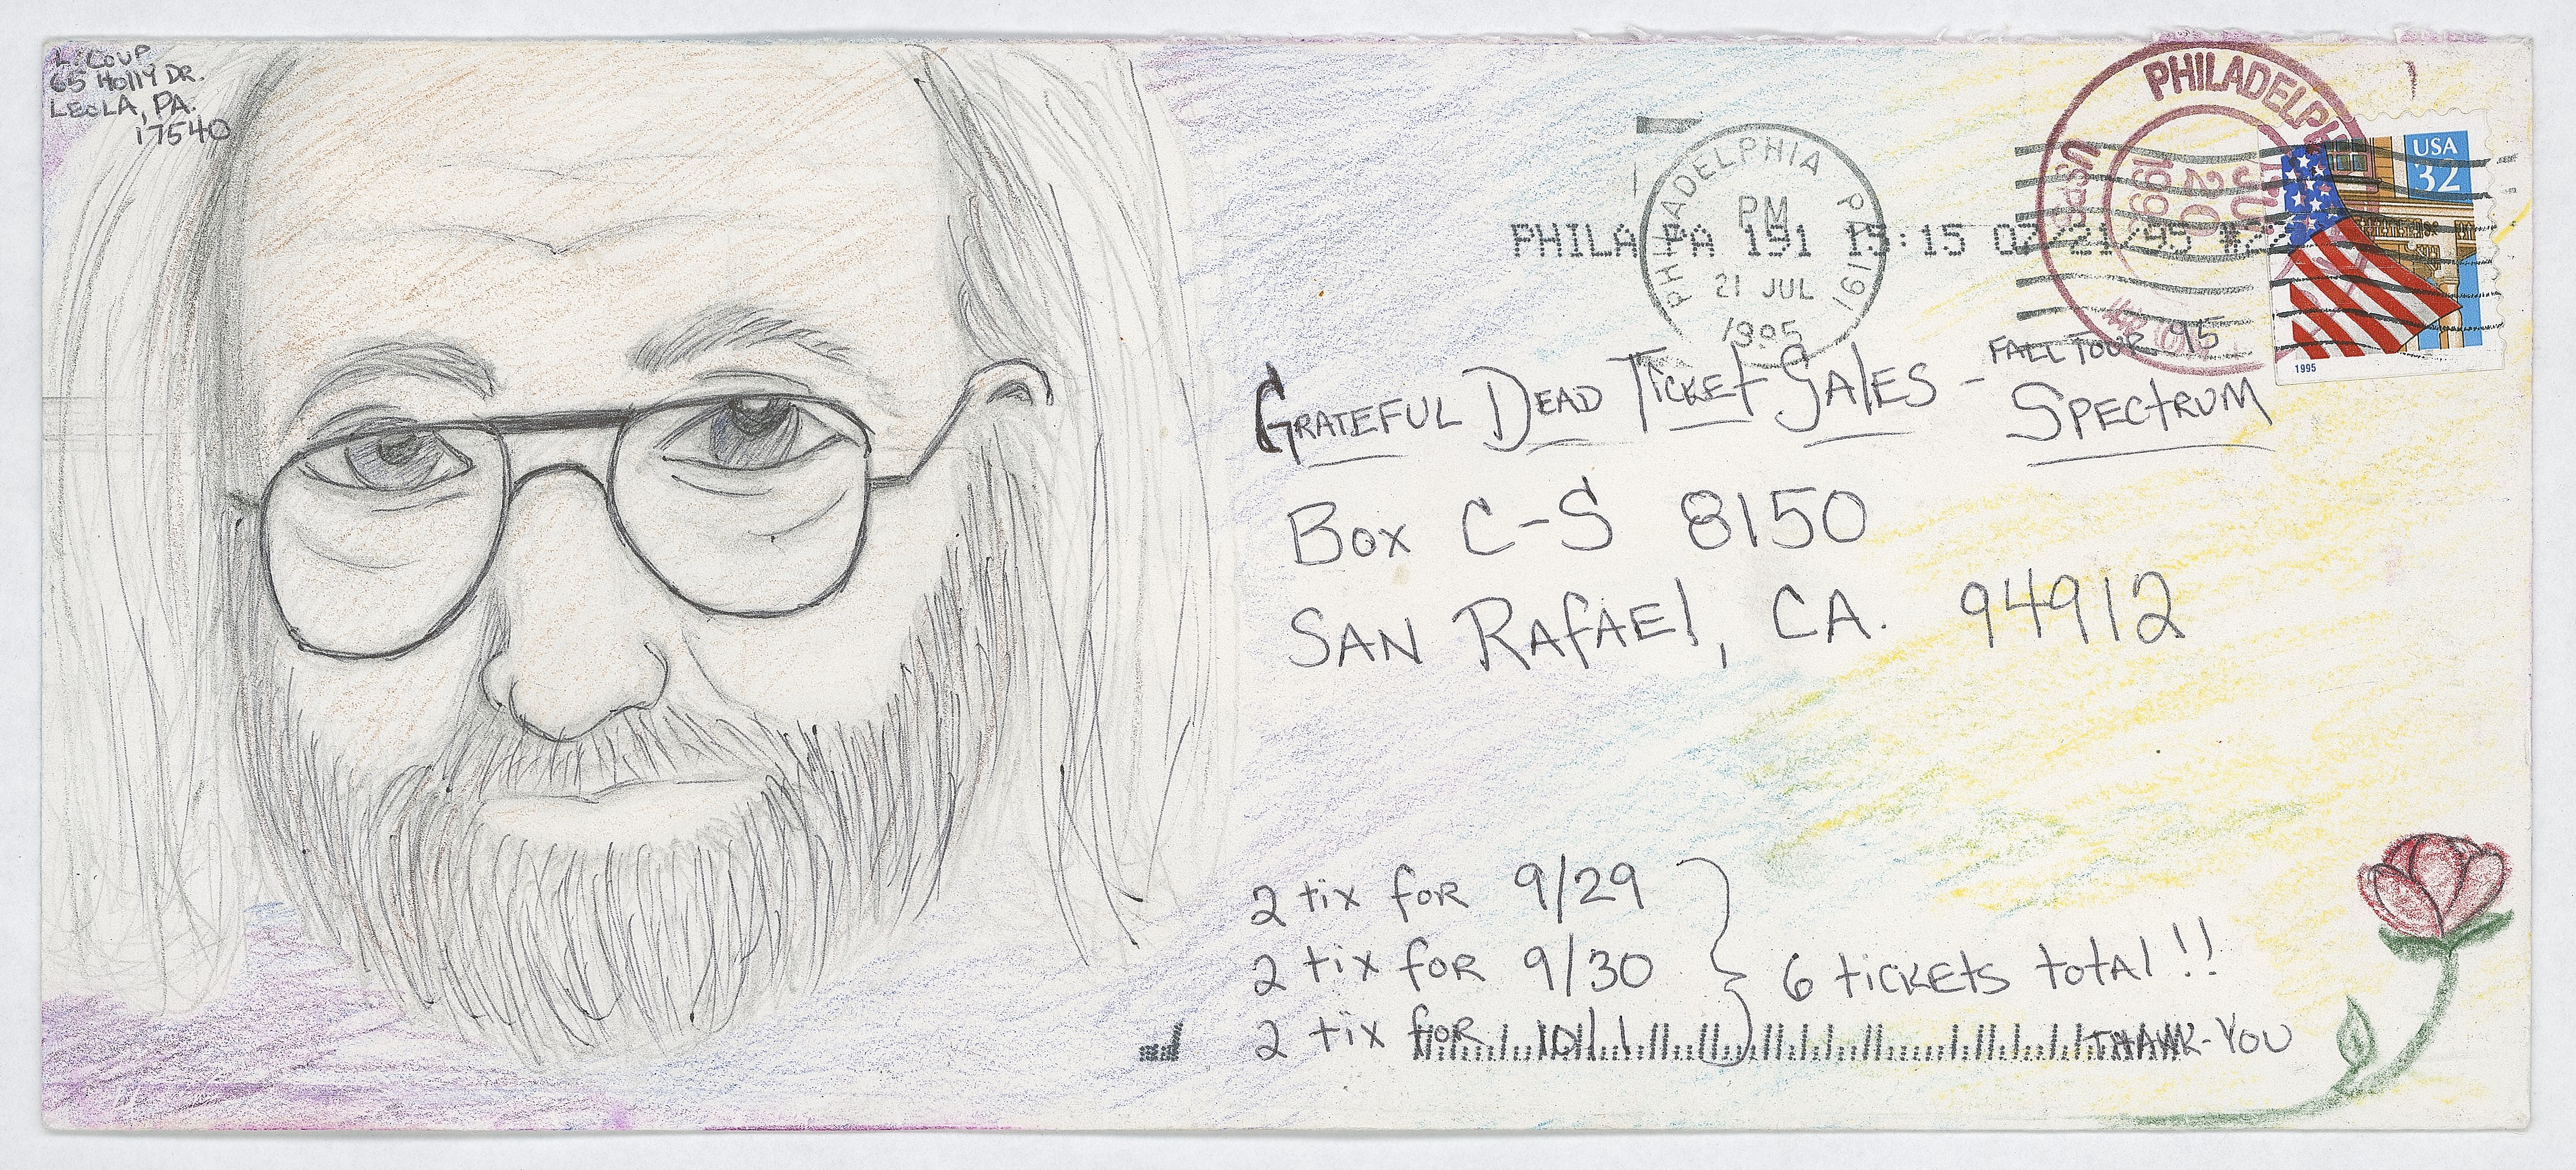 L. COUP
65 HOLLY DR.
LEOLA, PA.
17540
PHILADELPHIA PA 191
PM
21 JUL
1995
PHILA PA 191 15:15 07/21/95 #2
PHILADELPH
USPS
JUL
20
199
USA
32
1995
FALL TOUR 95
GRATEFUL DEAD TICKET SALES - SPECTRUM
BOX C-S 8150
SAN RAFAEL, CA. 94912
2 tix for 9/29
2 tix for 9/30
2 tix for 10/1
6 tickets total!!
THANK-YOU